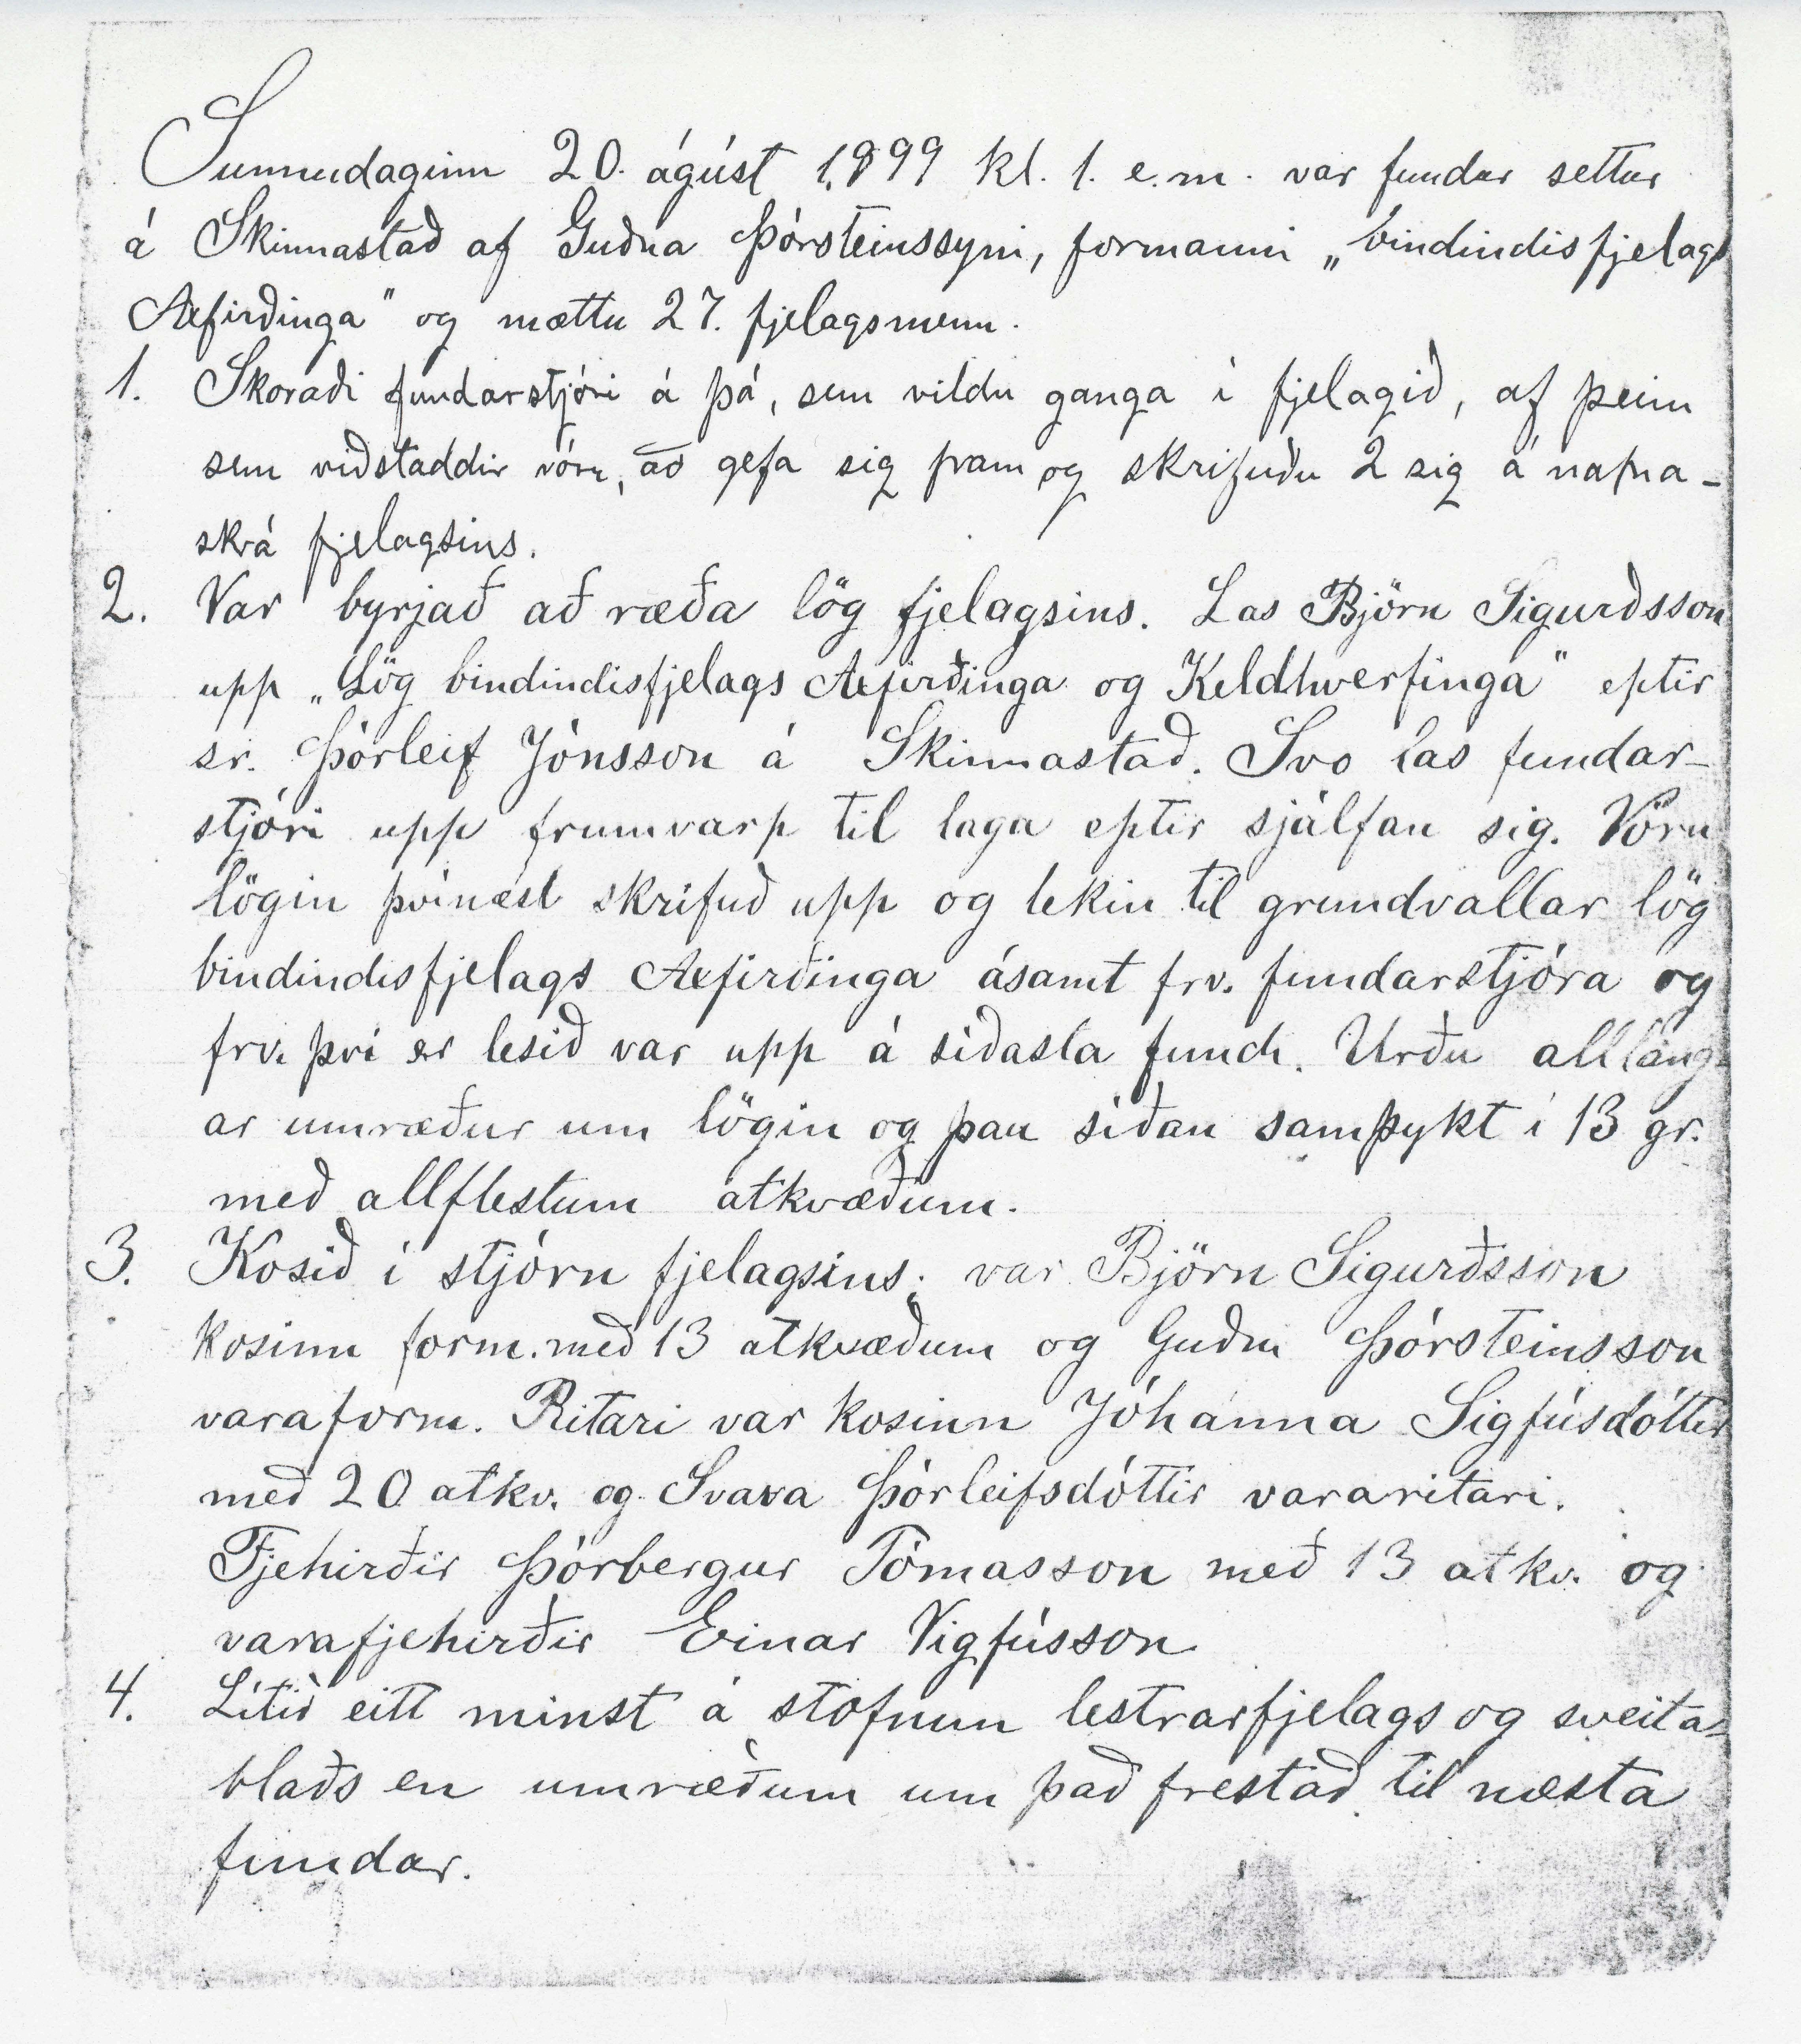 Sunnudaginn 20. ágúst 1899 kl. 1. e.m. var fundur settur
á Skinnastað af Guðna Þórsteinssyni, formanni „bindindisfjelags
Axfirðinga" og mættu 27. fjelagsmenn.
1. Skoraði fundarstjóri á þá, sem vildu ganga í fjelagið, af þeim
sem viðstaddir vóru, að gefa sig fram og skrifuðu 2 sig á nafna-
skrá fjelagsins.
2. Var byrjað að ræða lög fjelagsins. Las Björn Sigurðsson
upp „Lög bindindisfjelags Axfirðinga og Keldhverfinga" eptir
sr. Þórleif Jónsson á Skinnastað. Svo las fundar-
stjóri upp frumvarp til laga eptir sjálfan sig. Vóru
lögin þvínæst skrifuð upp og tekin til grundvallar lög
bindindisfjelags Axfirðinga ásamt frv. fundarstjóra og
frv. því er lesið var upp á síðasta fundi. Urðu alllang-
ar umræður um lögin og þau síðan samþykt í 13 gr.
með allflestum atkvæðum.
3. Kosið í stjórn fjelagsins; var Björn Sigurðsson
kosinn form. með 13 atkvæðum og Guðni Þórsteinsson
varaform. Ritari var kosinn Jóhanna Sigfúsdóttir
með 20 atkv. og Svava Þórleifsdóttir vararitari.
Fjehirðir Þórbergur Tómasson með 13 atkv. og
varafjehirðir Einar Vigfússon
4. Lítið eitt minst á stofnun lestrarfjelags og sveita-
blaðs en umræðum um það frestað til næsta
fundar.